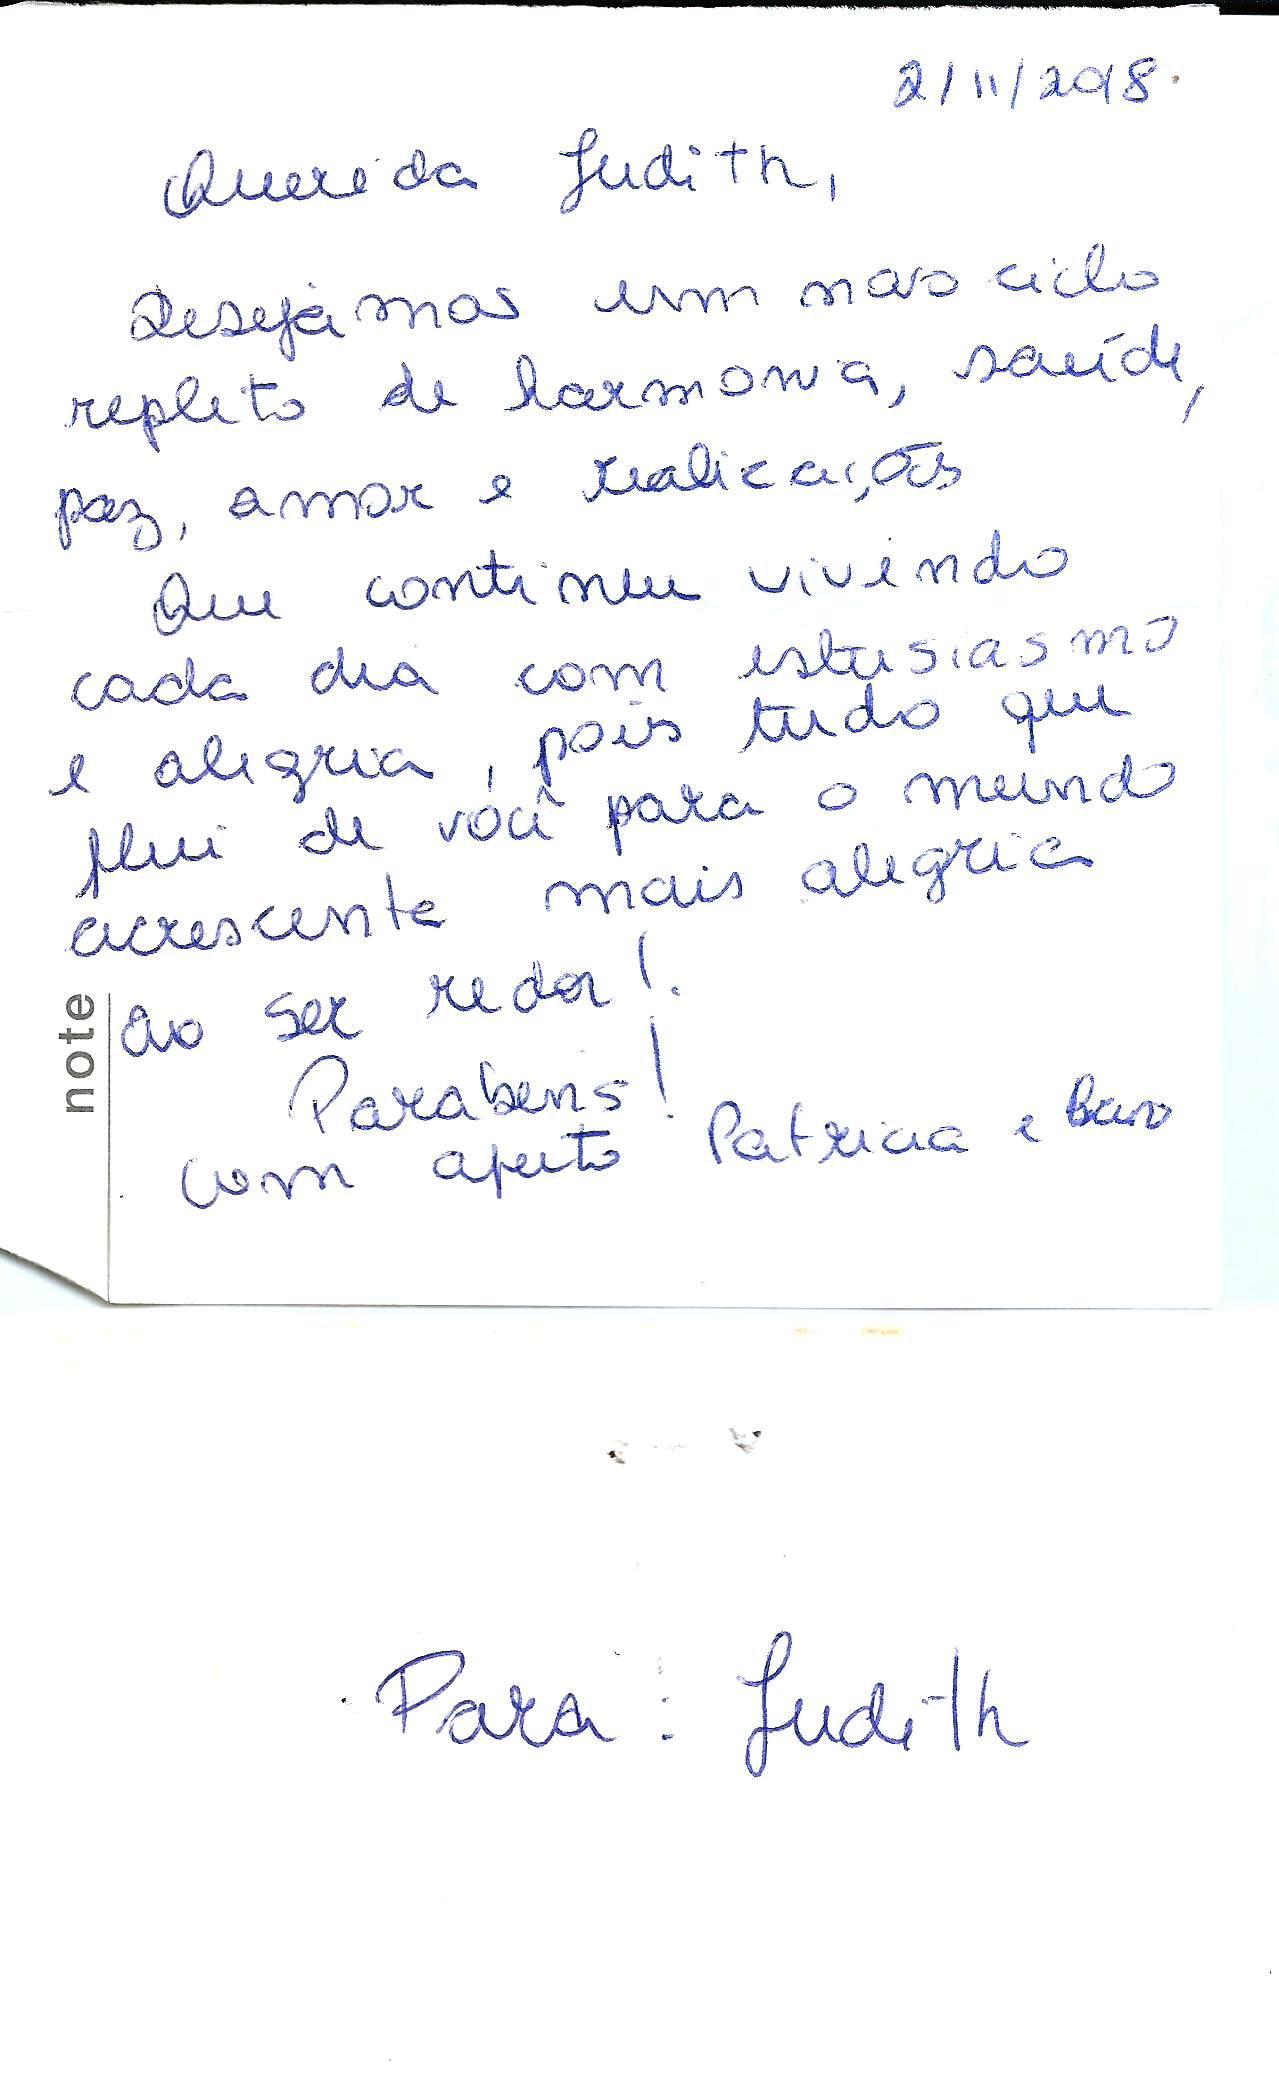 2/11/2018.
Querida Judith,
Desejamos um novo ciclo
repleto de harmonia, saúde,
paz, amor e realizações
Que continue vivendo
cada dia com estusiasmo
e alegria, pois tudo que
flui de você para o mundo
acrescenta mais alegria
ao ser redor!
note
Parabens!
com afeto Patricia e
Para: Judith